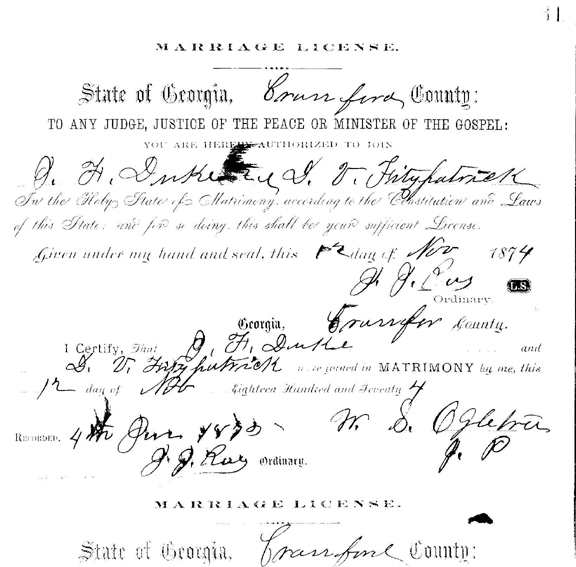 MARRIAGE LICENSE.
State of Georgia, Crawford County:
TO ANY JUDGE, JUSTICE OF THE PEACE OR MINISTER OF THE GOSPEL:
YOU ARE HEREBY AUTHORIZED TO JOIN
J. H. Duke & V. Fitzpatrick
In the Holy State of Matrimony, according to the Constitution and Laws
of this State; and for so doing, this shall be your sufficient License.
Given under my hand and seal, this day of Nov 1874
J. J. Ray L.S.
Ordinary.
Georgia, Crawford County.
I Certify, That J. H. Duke and
V. Fitzpatrick were joined in MATRIMONY by me, this
12 day of Nov Eighteen Hundred and Seventy 4
W. S. Ogletree
RECORDED, 4th J. P
J. J. Ray Ordinary.
MARRIAGE LICENSE.
State of Georgia, Crawford County: